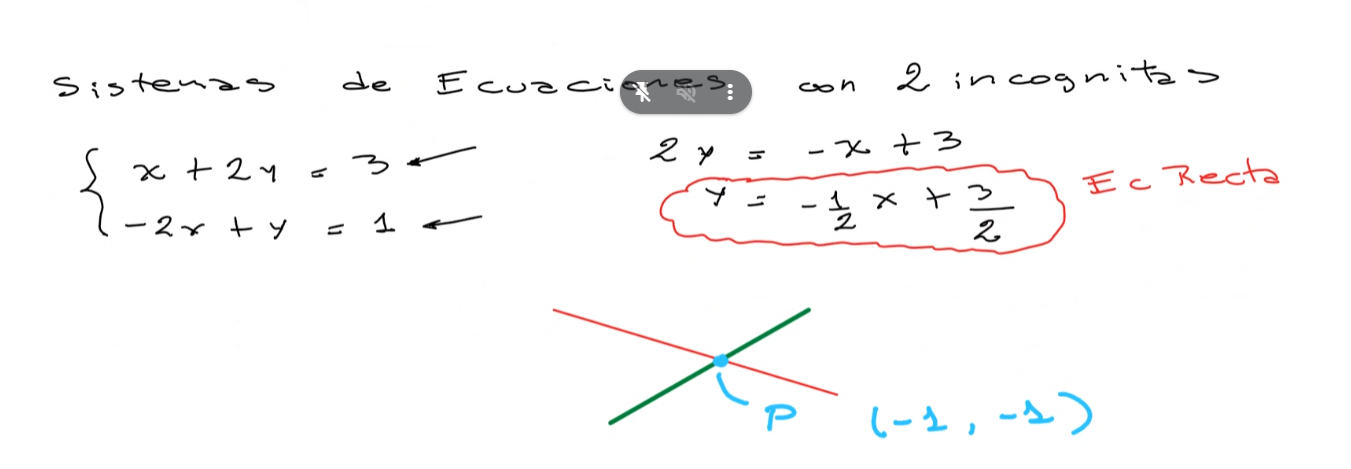 Sistemas de Ecuaciones con 2 incognitas
x + 2y = 3
-2x + y = 1
2y = -x + 3
y = -1/2 x + 3/2
Ec Recta
P (-1, -1)